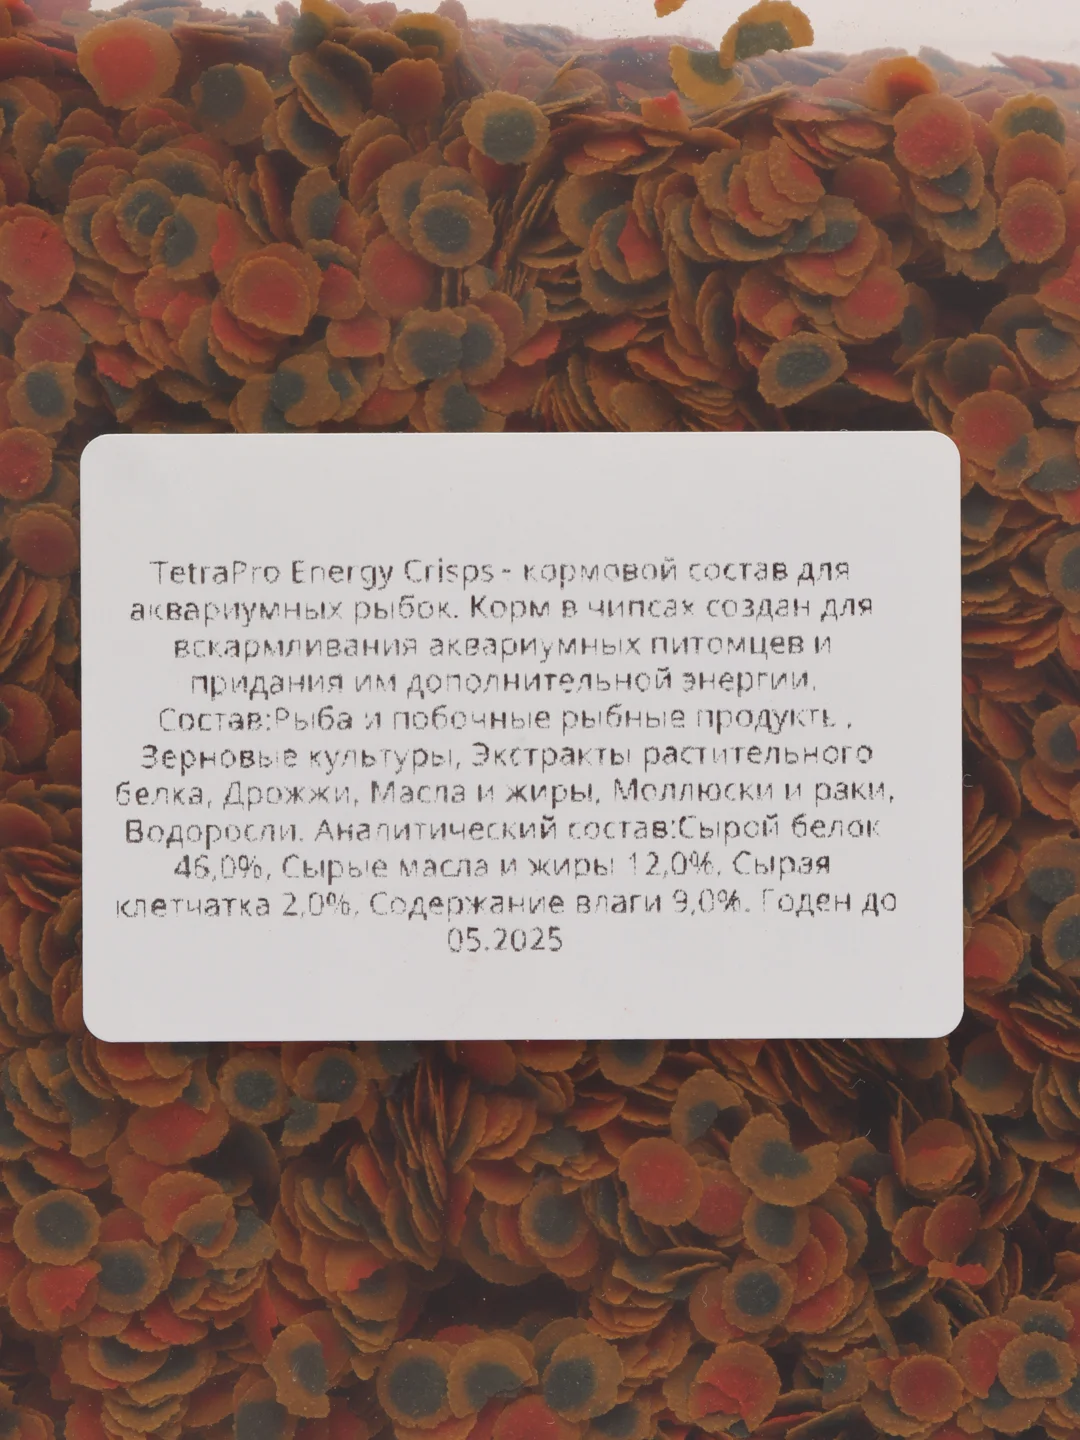 TetraPro Energy Crisps - кормовой состав для
аквариумных рыбок. Корм в чипсах создан для
вскармливания аквариумных питомцев и
придания им дополнительной энергии.
Состав:Рыба и побочные рыбные продукты ,
Зерновые культуры, Экстракты растительного
белка, Дрожжи, Масла и жиры, Моллюски и раки,
Водоросли. Аналитический состав:Сырой белок
46,0%, Сырые масла и жиры 12,0%, Сырая
клетчатка 2,0%, Содержание влаги 9,0%. Годен до
05.2025